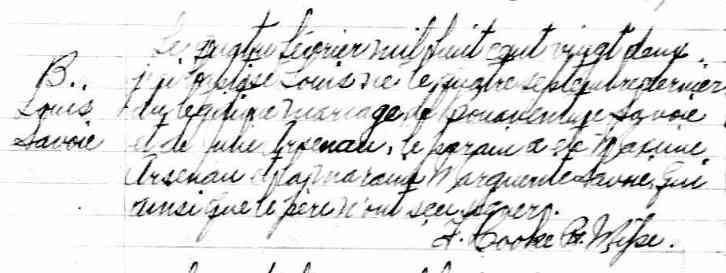 Le quatre février mil huit cent vingt deux
B.. j'ai baptisé Louis né le quatre septembre dernier
Louis du légitime mariage de Bonaventure Savoie
Savoie et de Julie Arsenau, le parain a été Maxime
Arsenau et la maraine Marguerite Savoie, qui
ainsi que le père n'ont sçu signer.
T. Cooke Ptr. Misse.